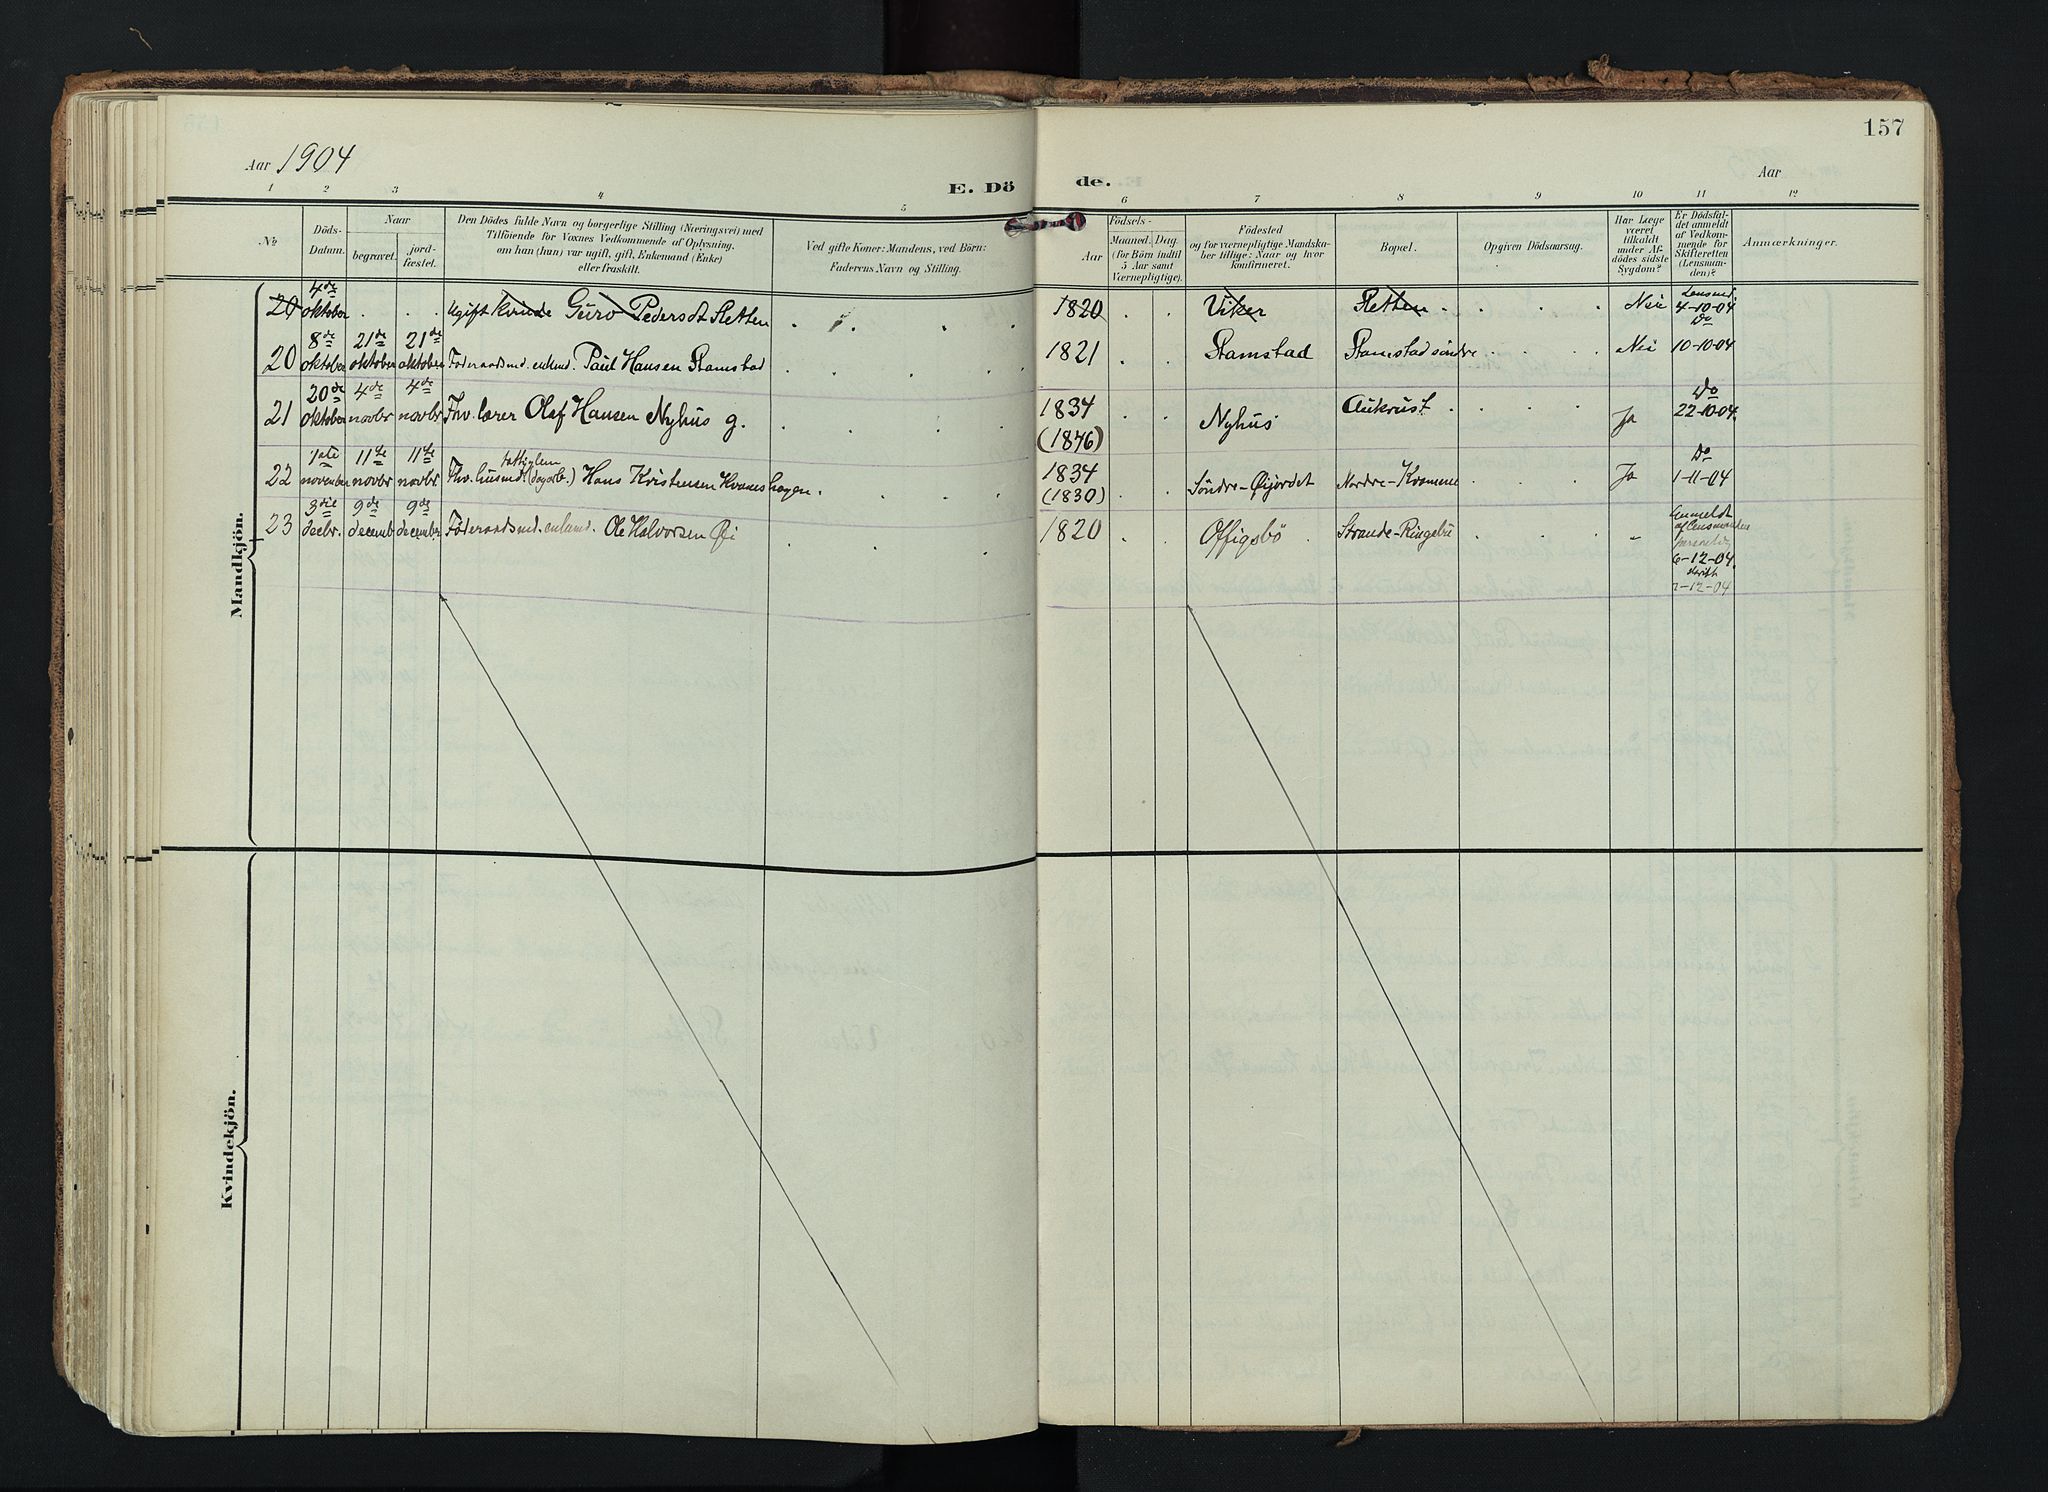 157
Aar 1904
Aar
E. Döde.
1 2 3 4 5 6 7 8 9 10 11 12
№
Döds-Datum.
Naar
begravet.
jordfæstet.
Den Dödes fulde Navn og borgerlige Stilling (Næringsvei) med
Tilföiende for Voxnes Vedkommende af Oplysning,
om han (hun) var ugift, gift, Enkemand (Enke)
eller fraskilt.
Ved gifte Koner: Mandens, ved Börn:
Faderens Navn og Stilling.
Födsels-
Aar
Maaned. Dag.
(for Börn indtil
5 Aar samt
Værnepligtige).
Födested
og for værnepligtige Mandska-
ber tillige: Naar og hvor
Konfirmeret.
Bopæl.
Opgiven Dödsaarsag.
Har Læge
været
tilkaldt
under Af-
dödes sidste
Sygdom?
Er Dödsfal-
det anmeldt
af Vedkom-
mende for
Skifteretten
(Lensman-
den)?
Anmærkninger.
Mandkjön.
20 4de oktober . . Ugift kvinde Guro Pedersdt Sletten 1820 . . Viker Sletten . . Nei Lensmd. 4-10-04
20 8de oktober 21de oktober 21de oktober Föderaadsmd. enkmd. Paul Hansen Stamstad 1821 . . Stamstad Stamstad söndre . . Nei Do 10-10-04
21 20de oktober 4de novbr 4de novbr Fhv. lærer Olaf Hansen Nyhus g. 1834 (1846) . . Nyhus Aukrust . . Ja Do 22-10-04
22 1ste november 11te novbr 11te novbr. Fhv. husmd. fattiglem (dagarb.) Hans Kristensen Kvamshagen. 1834 (1830) . . Söndre-Öijordet Nordre-Kvamme . . Ja Do 1-11-04
23 3die decbr. 9de decemb 9de december Föderaadsmd. enkmd. Ole Halvorsen Öi 1820 . . Offigsbö Strande-Ringebu . . „ Anmeldt af Lensmanden 6-12-04. skrift 7-12-04
Kvindekjön.